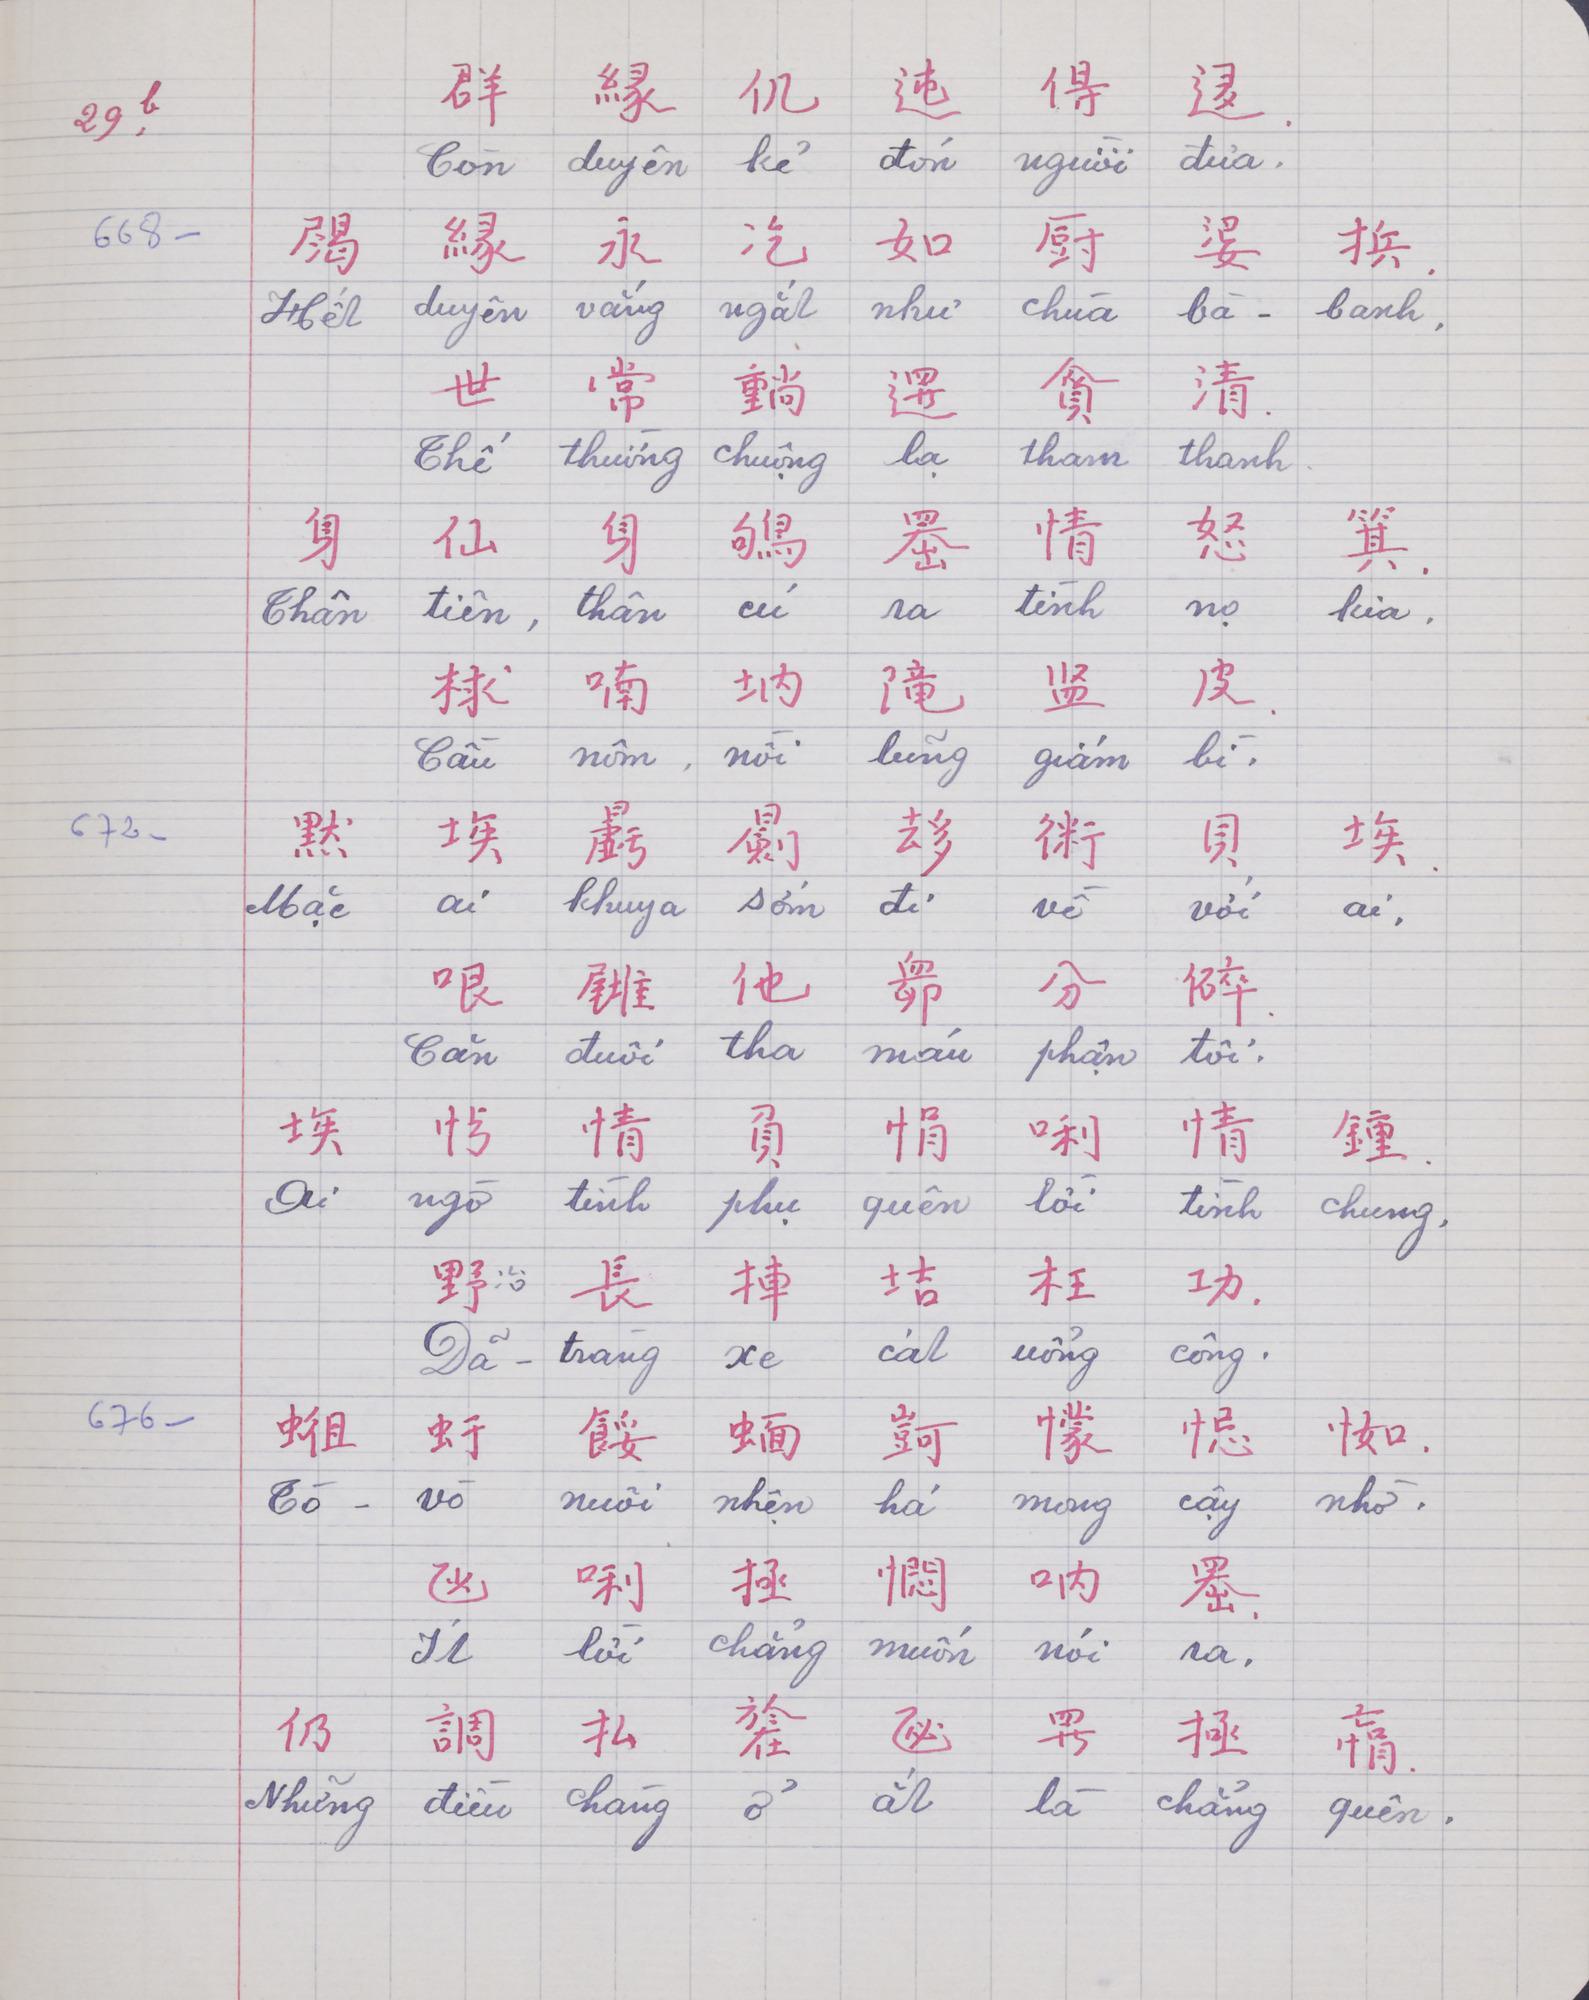 29b.
群 緣 仉 迍 得 𨔾.
Còn duyên kẻ đón người đưa.
668- 𡱩 緣 永 汔 如 厨 婆 抶.
Hết duyên vắng ngắt như chùa bà - banh.
世 常 𨤮 𨔍 貪 清.
Thế thường chuộng lạ tham thanh.
身 仙 身 鴝 𦋦 情 怒 箕.
Thân tiên, thân cú ra tình nọ kia.
梂 喃 坳 𨻫 监 皮.
Cầu nôm, nồi lũng giám bì.
672- 默 埃 𣌉 𣋽 𠫾 術 貝 埃.
Mặc ai khuya sớm đi về với ai.
哏 𡳪 他 𦚐 分 碎.
Cắn đuôi tha máu phận tôi.
埃 𢗉 情 負 悁 唎 情 鍾.
Ai ngờ tình phụ quên lời tình chung,
野 長 揷 𡋥 枉 功.
Dã - tràng xe cát uổng công.
676- 蛆 虶 餒 蝒 𠀲 懞 忌 㤇.
Tò - vò nuôi nhện há mong cậy nhờ.
𠃣 唎 拯 㦖 吶 𦋦.
Ít lời chẳng muốn nói ra.
仍 調 払 𣄒 乙 𱺵 拯 悁.
Những điều chàng ở ắt là chẳng quên.